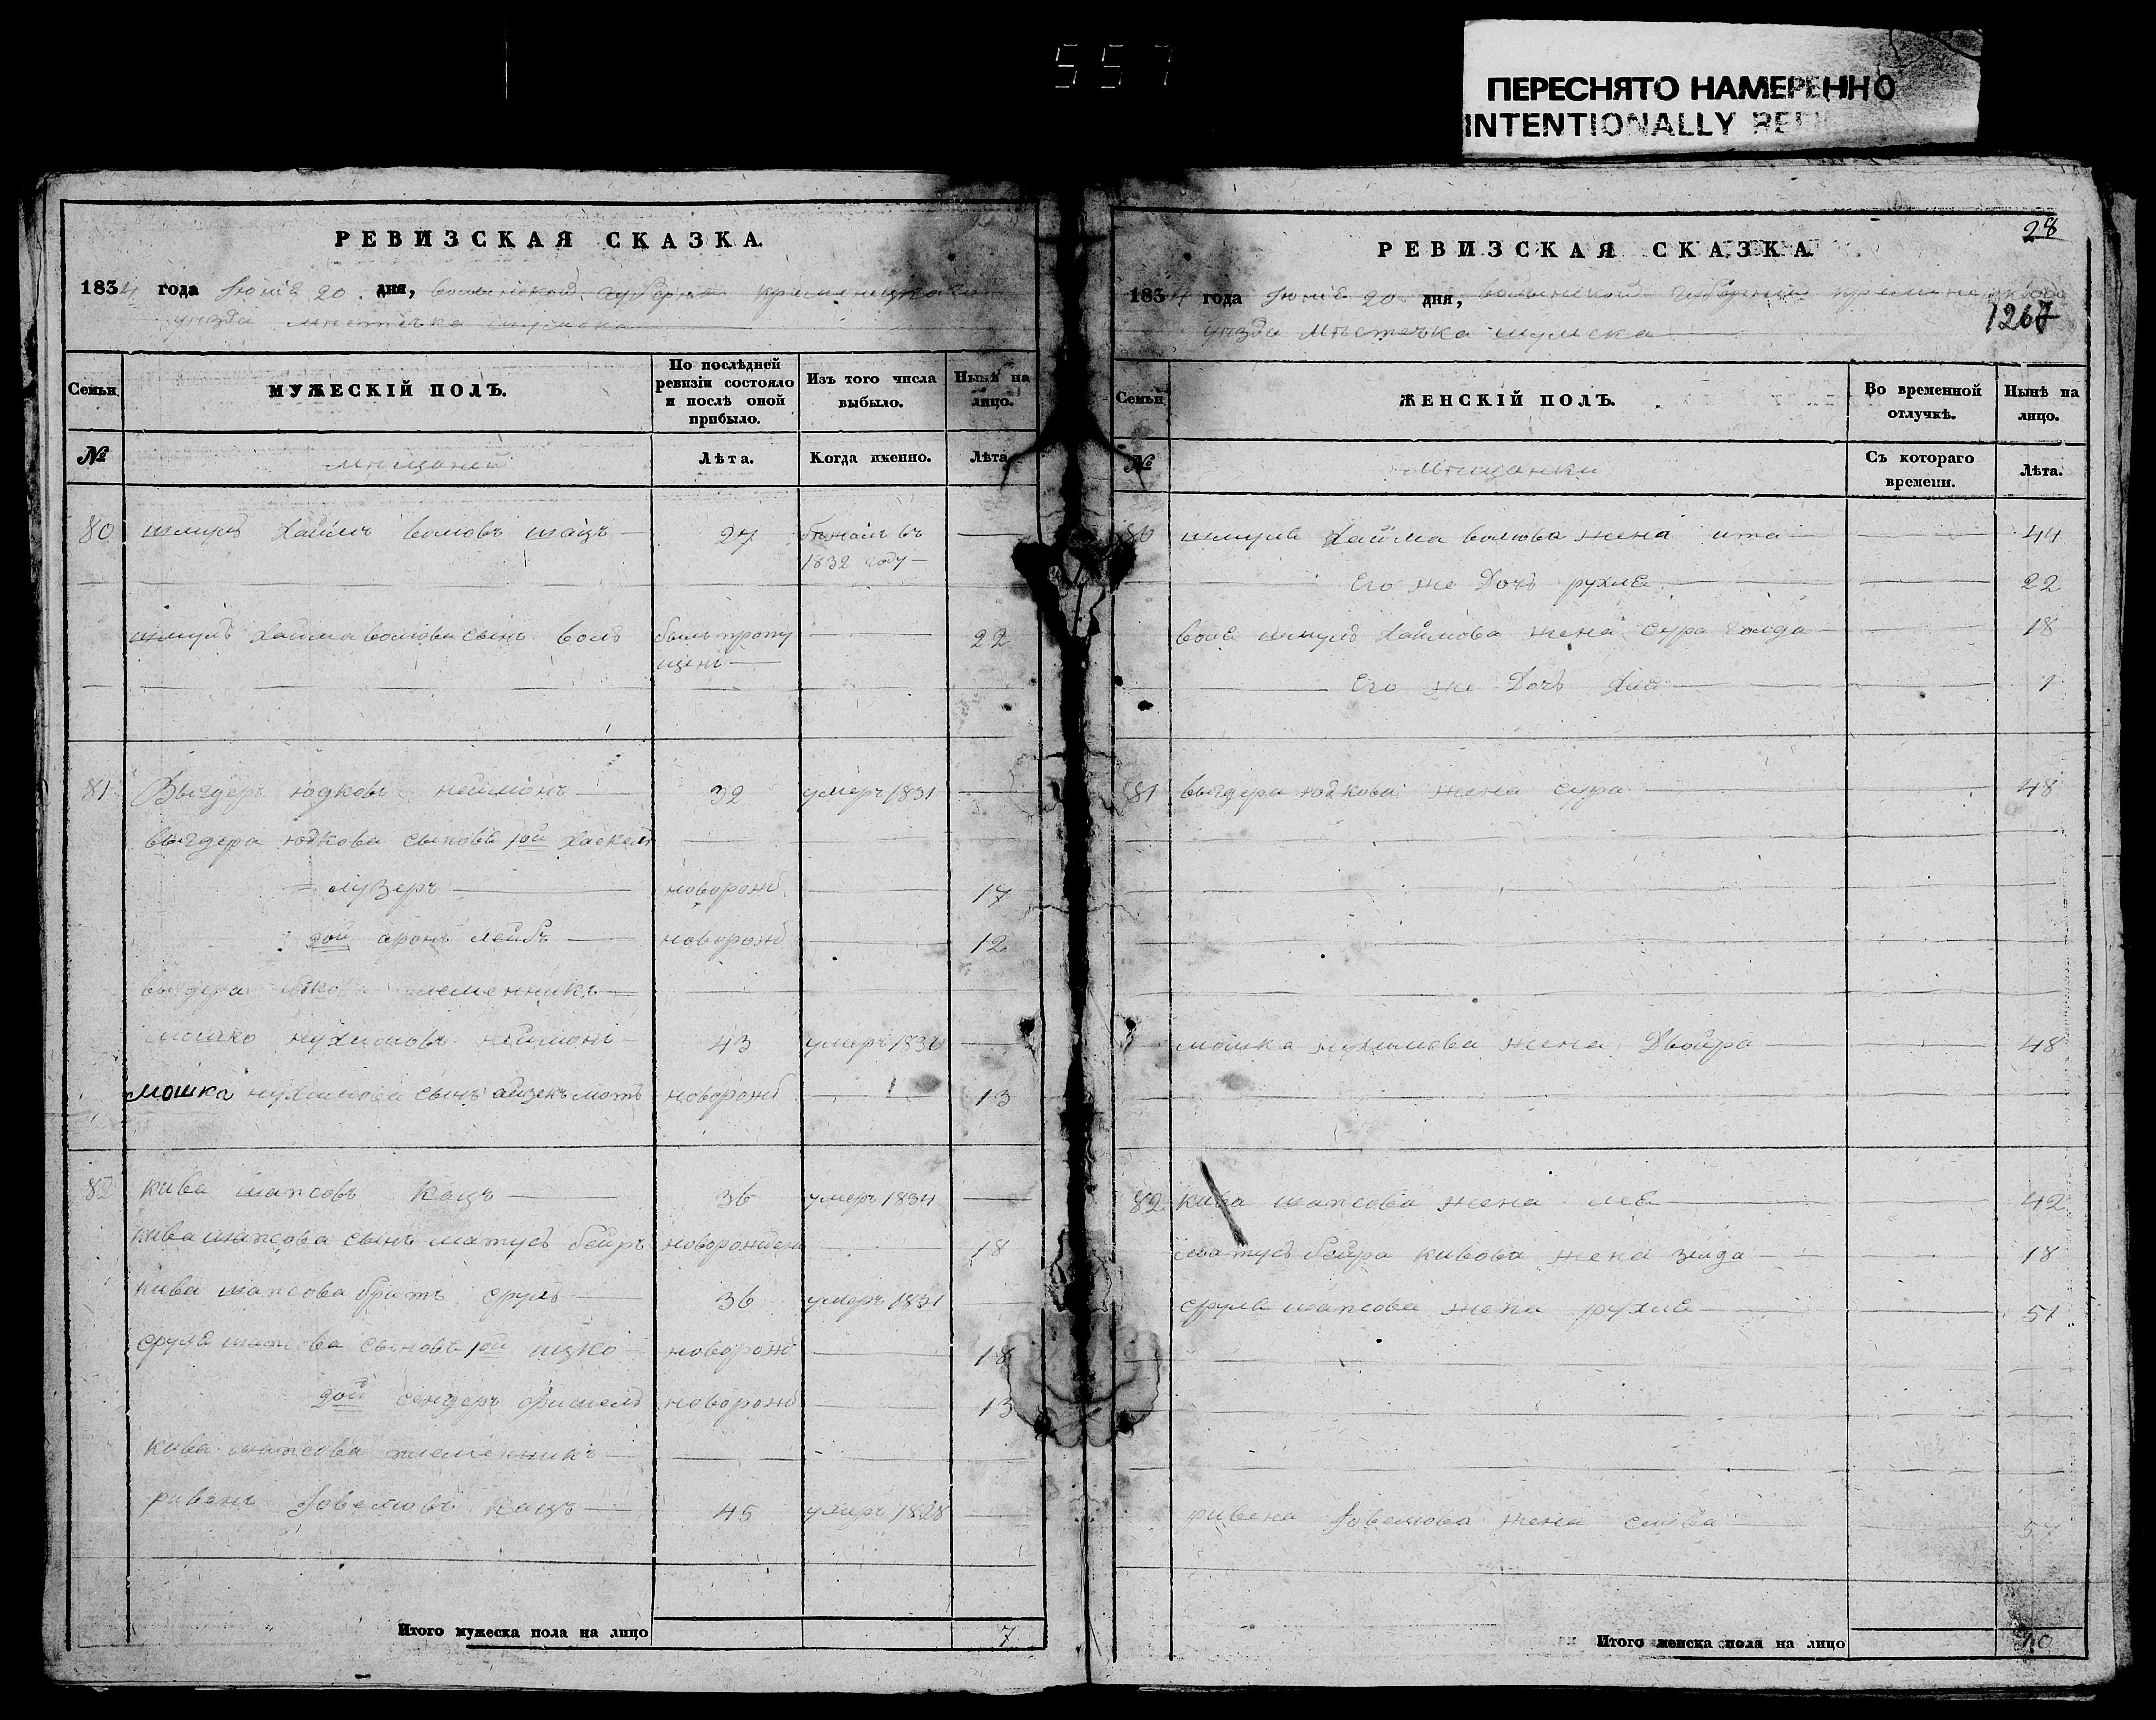 557
ПЕРЕСНЯТО НАМЕРЕННО
INTENTIONALLY
РЕВИЗСКАЯ СКАЗКА.
1834 года Іюня 20 дня, волынской губерніи кременецкаго
уезда мястечка шумска
Семьи
МУЖЕСКІЙ ПОЛЪ.
По послѣдней ревизіи состояло и послѣ оной прибыло.
Изъ того числа выбыло.
Нынѣ на лицо.
№
мещаней
Лѣта.
Когда именно.
Лѣта
80 шмуль Хаймъ волковъ кацъ 27 въ
1832 году
шмуль Хайма сынъ волъ былъ пропу 22
щенъ
81 Выгдеръ юдковъ неймонъ 32 умеръ 1831
выгдера юдкова сыновя 1ой Хаскель
лузеръ новорожд 17
2ой аронъ лейбъ новорожд 12
выгдера племенникъ
мошко нухимовъ неймонъ 43 умеръ
мошка нухимова сынъ айзекъ мотъ новорожд 13
82 кива шапсовъ кацъ 36 умеръ 1834
кива шапсова сынъ матусь бейръ новорожденъ 18
кива шапсова братъ сруль 36 умеръ 1831
сруля шапсова сыновя 1ой ицко новорожд 18
2ой сендеръ фишель новорожд 13
кива шапсова племенникъ
рувенъ кацъ 45 умеръ 1828
Итого мужеска пола на лицо 7
28
РЕВИЗСКАЯ СКАЗКА.
1834 года Іюня 20 дня, волынской губерніи кременецкаго
1267
уезда мястечка шумска
Семьи
ЖЕНСКІЙ ПОЛЪ.
Во временной отлучкѣ.
Нынѣ на лицо.
№
мещанки
Съ котораго времени.
Лѣта.
80 шмуля Хайма жена ита 44
Его же Дочь рухля 22
воля шмуль Хаймова жена сура голда 18
Его же Дочь 1
81 выгдера юдкова жена сура 48
мошка нухимова жена Двойра 48
82 кива шапсова жена лея 42
матусь бейра кивова жена зелда 18
сруля шапсова жена рухля 51
рувена жена
Итого женска пола на лицо